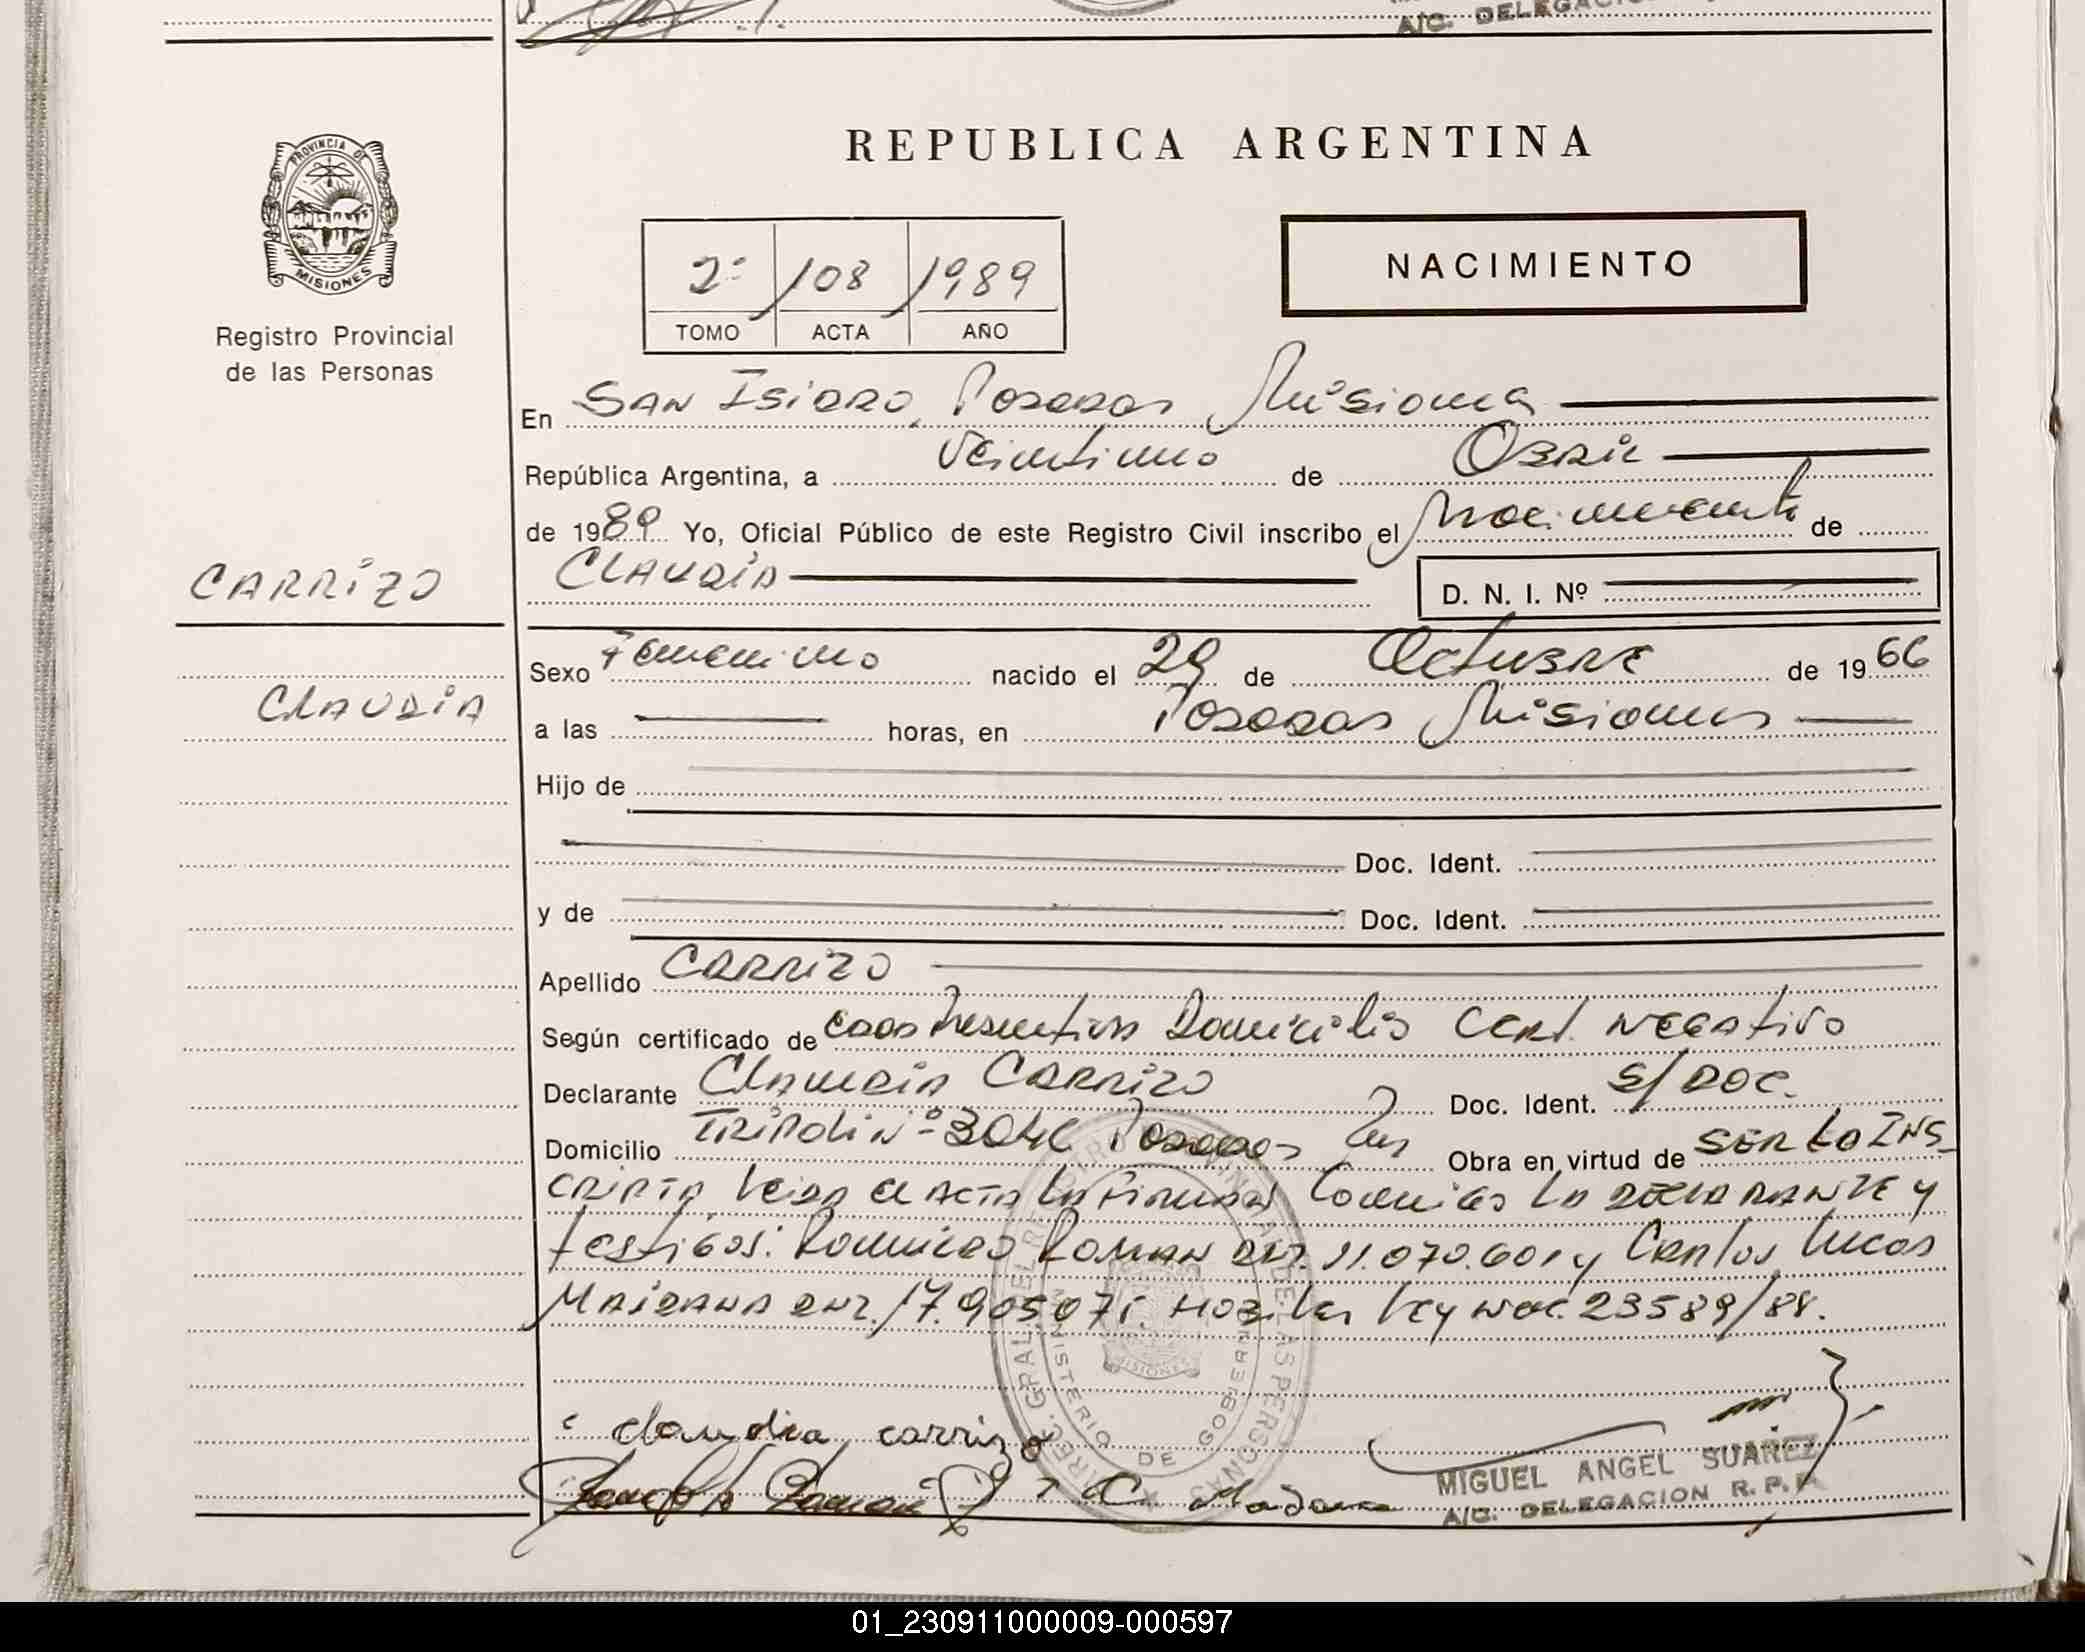 A/C. DELEGACION
PROVINCIA DE
MISIONES
Registro Provincial
de las Personas
REPUBLICA ARGENTINA
2º / 108 / 1989
TOMO ACTA AÑO
NACIMIENTO
En San Isidro, Posadas Misiones
República Argentina, a Veintiuno de Abril
de 1989 Yo, Oficial Público de este Registro Civil inscribo el Nacimiento de
CARRIZO
Claudia
D. N. I. Nº
Sexo Femenino nacido el 29 de Octubre de 1966
CLAUDIA
a las horas, en Posadas Misiones
Hijo de
Doc. Ident.
y de Doc. Ident.
Apellido Carrizo
Según certificado de Domicilio Cert. Negativo
Declarante Claudia Carrizo Doc. Ident. S/Doc.
Domicilio Nº 3046 Posadas Obra en virtud de ser la ins-
cripta. Leida el acta la firman conmigo la declarante y
testigos: Roman DNI. 11.070.601 y Carlos Lucas
Maidana DNI. 17.905071. Ley Nac. 23589/88.
claudia carrizo
MIGUEL ANGEL SUAREZ
A/C. DELEGACION R. P. P.
MINISTERIO DE GOBIERNO
01_230911000009-000597